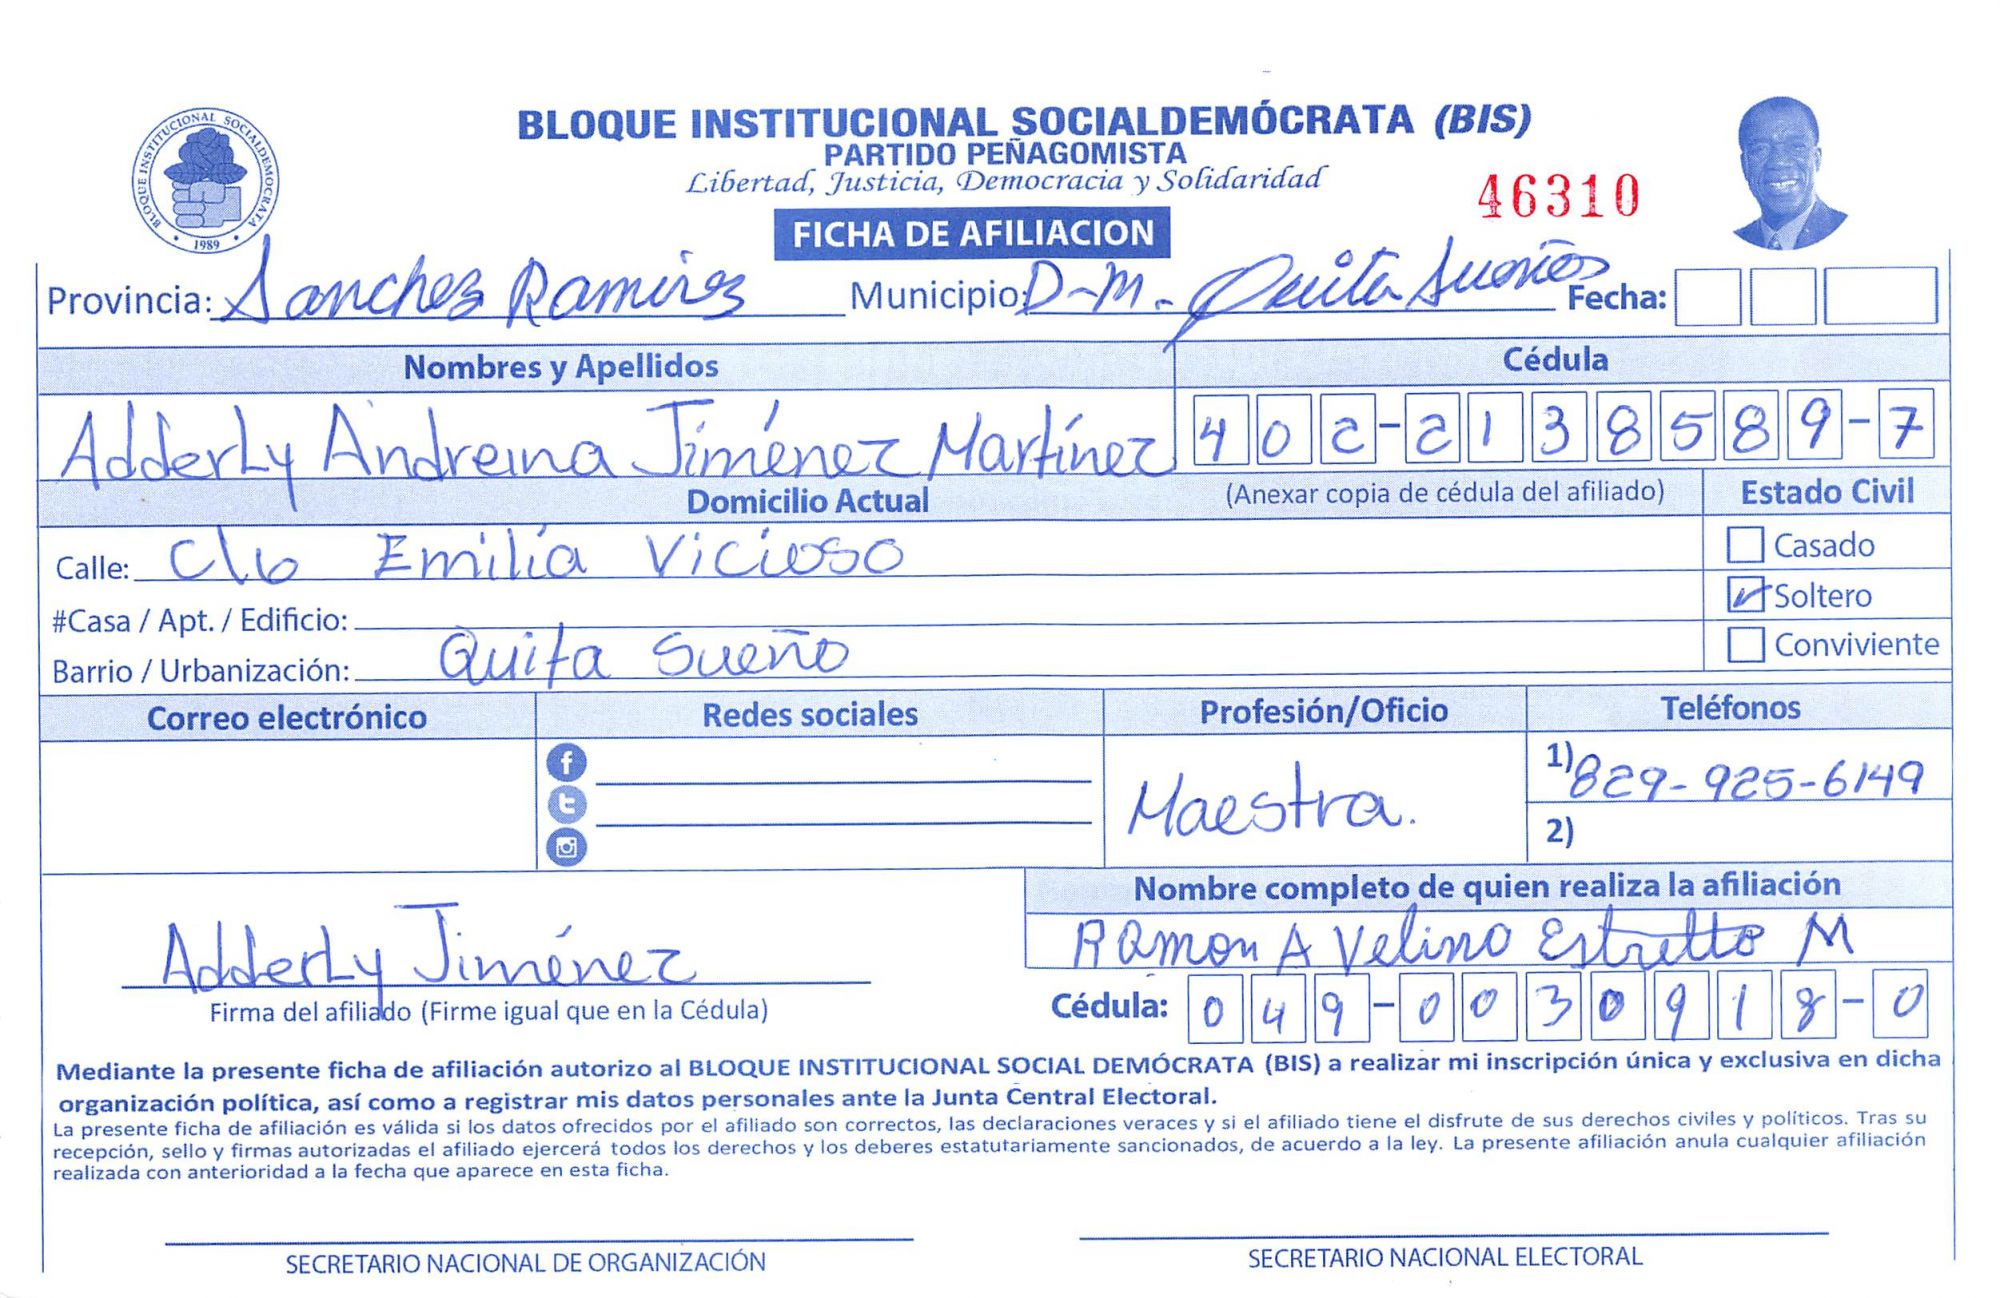 BLOQUE INSTITUCIONAL SOCIALDEMÓCRATA (BIS)
PARTIDO PEÑAGOMISTA
Libertad, Justicia, Democracia y Solidaridad
46310
BLOQUE INSTITUCIONAL SOCIALDEMOCRATA
1989
FICHA DE AFILIACION
Provincia: Sanchez Ramirez Municipio: D-M. Quita Sueños Fecha:
Nombres y Apellidos Cédula
Adderly Andreina Jiménez Martínez 402-2138589-7
Domicilio Actual (Anexar copia de cédula del afiliado) Estado Civil
Calle: Emilia Vicioso Casado
#Casa / Apt. / Edificio: Soltero
Barrio / Urbanización: Quita Sueño Conviviente
Correo electrónico Redes sociales Profesión/Oficio Teléfonos
Maestra. 1) 829-925-6149
2)
Nombre completo de quien realiza la afiliación
Adderly Jiménez Ramon A Velino M
Firma del afiliado (Firme igual que en la Cédula) Cédula: 049-0030918-0
Mediante la presente ficha de afiliación autorizo al BLOQUE INSTITUCIONAL SOCIAL DEMÓCRATA (BIS) a realizar mi inscripción única y exclusiva en dicha
organización política, así como a registrar mis datos personales ante la Junta Central Electoral.
La presente ficha de afiliación es válida si los datos ofrecidos por el afiliado son correctos, las declaraciones veraces y si el afiliado tiene el disfrute de sus derechos civiles y políticos. Tras su
recepción, sello y firmas autorizadas el afiliado ejercerá todos los derechos y los deberes estatutariamente sancionados, de acuerdo a la ley. La presente afiliación anula cualquier afiliación
realizada con anterioridad a la fecha que aparece en esta ficha.
SECRETARIO NACIONAL DE ORGANIZACIÓN SECRETARIO NACIONAL ELECTORAL